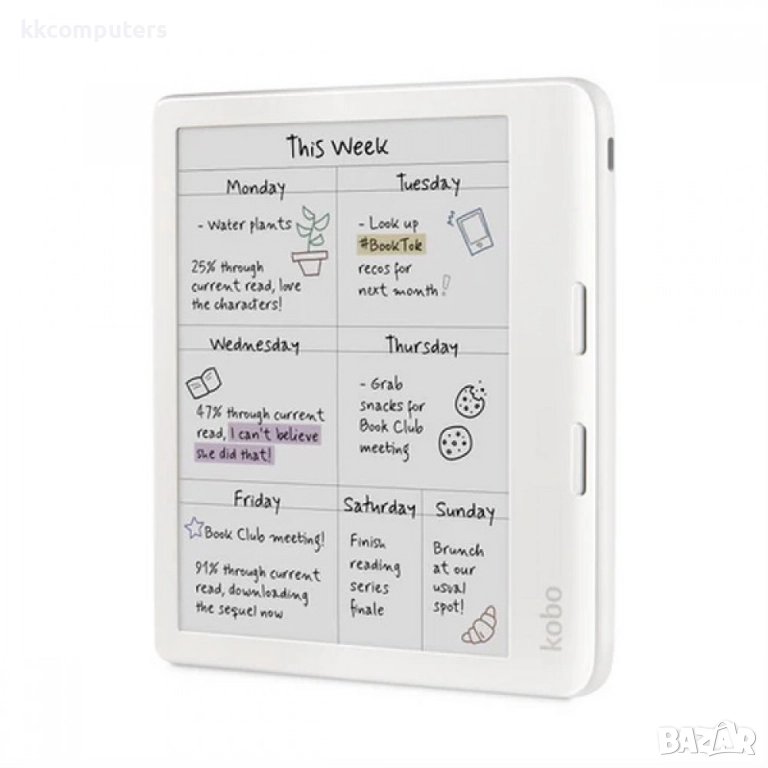 kkcomputers
This Week
Monday
- Water plants
25% through
current read, love
the characters!
Tuesday
- Look up
#BookTok
recos for
next month!
Wednesday
47% through current
read, I can't believe
she did that!
Thursday
- Grab
snacks for
Book Club
meeting
Friday
Book Club meeting!
91% through current
read, downloading
the sequel now
Saturday
Finish
reading
series
finale
Sunday
Brunch
at our
usual
spot!
kobo
BAZAR